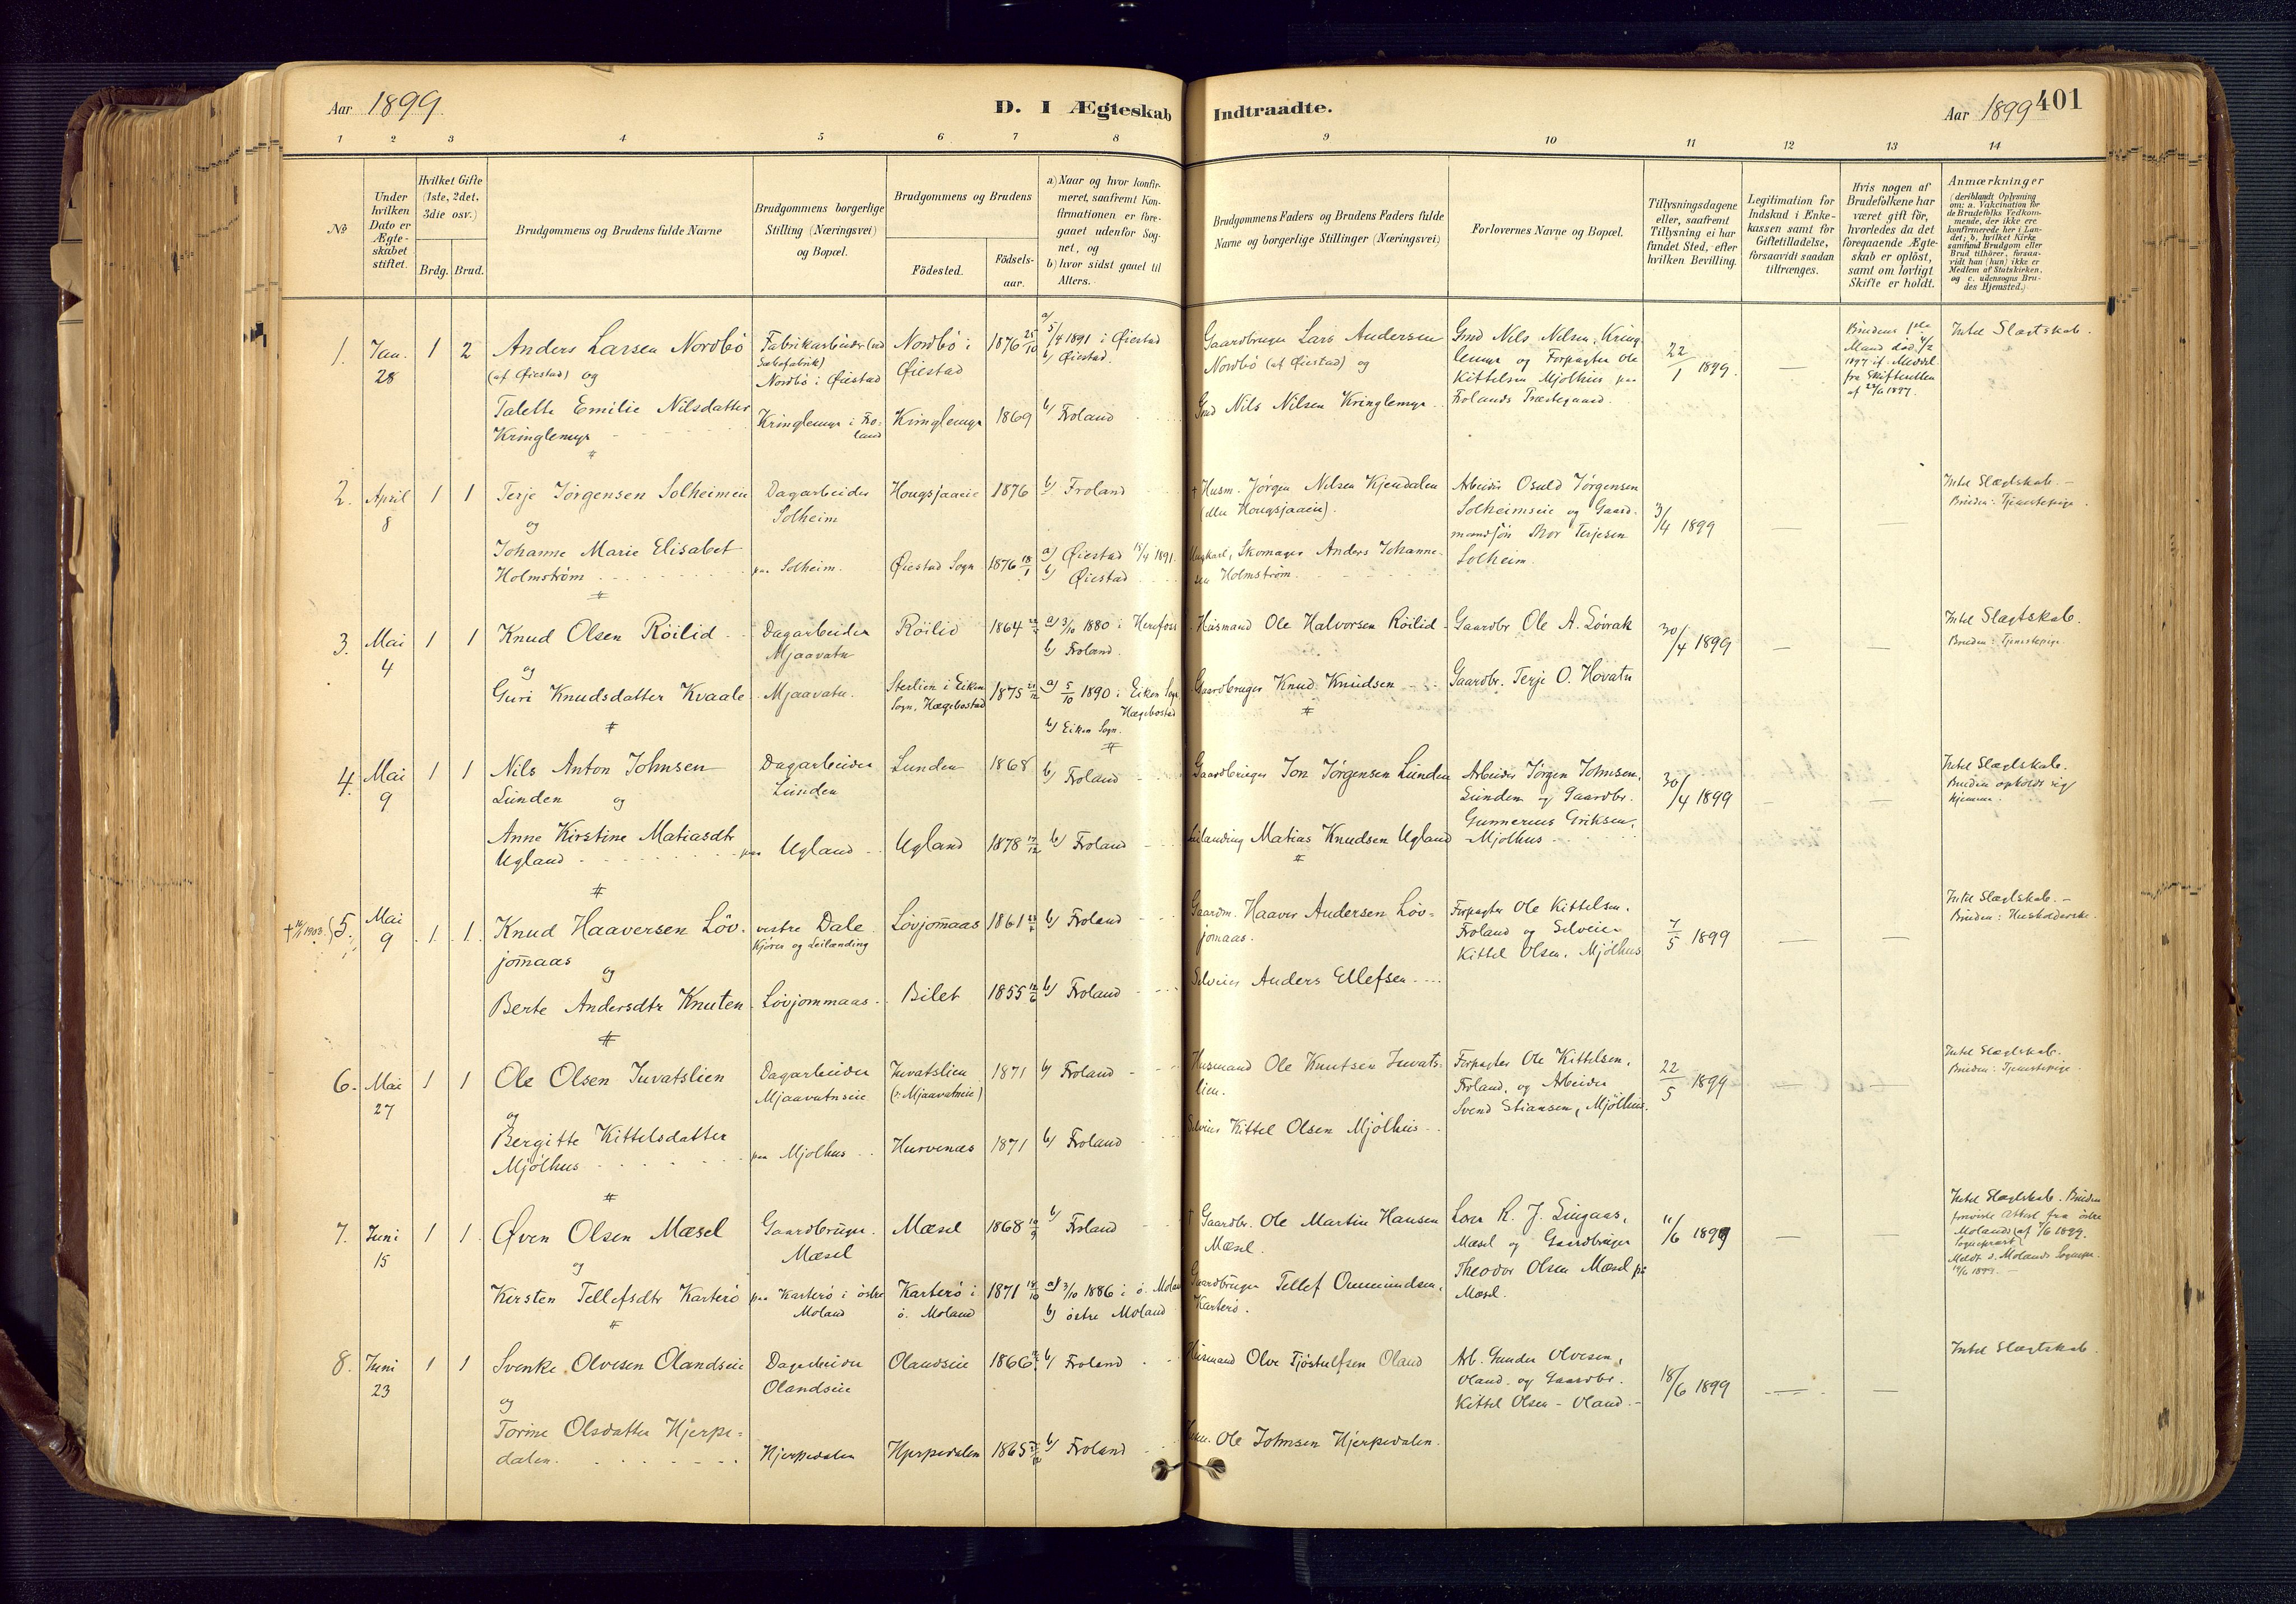 Aar 1899.
D. I Ægteskab Indtraadte.
Aar 1899 401
1 2 3 4 5 6 7 8 9 10 11 12 13 14
No
Under hvilken Dato er Ægteskabet stiftet.
Hvilket Gifte (1ste, 2det, 3die osv.)
Brdg. Brud.
Brudgommens og Brudens fulde Navne
Brudgommens borgerlige Stilling (Næringsvei) og Bopæl.
Brudgommens og Brudens
Födested.
Födsels-aar.
a) Naar og hvor konfirmeret, saafremt Konfirmationen er foregaaet udenfor Sognet, og
b) hvor sidst gaaet til Alters.
Brudgommens Faders og Brudens Faders fulde Navne og borgerlige Stillinger (Næringsvei)
Forlovernes Navne og Bopæl.
Tillysningsdagene eller, saafremt Tillysning ei har fundet Sted, efter hvilken Bevilling.
Legitimation for Indskud i Enkekassen samt for Giftetilladelse, forsaavidt saadan tiltrænges.
Hvis nogen af Brudefolkene har været gift för, hvorledes da det foregaaende Ægteskab er oplöst, samt om lovligt Skifte er holdt.
Anmærkninger
(deriblandt Oplysning om: a. Vakcination for de Brudefolks Vedkommende, der ikke ere konfirmerede her i Landet; b. hvilket Kirkesamfund Brudgom eller Brud tilhører, forsaavidt han (hun) ikke er Medlem af Statskirken, og c. udensogns Brudes Hjemsted.)
1. Jan. 28 1 2
Anders Larsen Nordbö
(af Øiestad) og
Fabrikarbeider
Nordbö i Øiestad
Nordbö i Øiestad
1876 25/10
a/ 5/4 1891 i Øiestad
b/ Øiestad.
Gaardbruger Lars Andersen
Nordbö (af Øiestad) og
Gmd Nils Nilsen, Kringlemyr og Forpagter Ole
Kittelsen Mjølhus paa
Frolands Præstegaard.
22/1 1899.
—
Brudens 1ste Mand död
fra Skifteretten
Intet Slægtskab.
Talette Emilie Nilsdatter
Kringlemyr
Kringlemyr i Froland
Kringlemyr
1869
b/ Froland
Gmd Nils Nilsen Kringlemyr
2. April 8 1 1
Terje Jörgensen Solheimeie
og
Dagarbeider
Solheim
Hougsjaaeie
1876
b/ Froland
+ Husm. Jörgen Nilsen Kjendalen
(eller Hougsjaaeie).
Arbeider Osuld Jörgensen
Solheimseie og Gaardmandsjön Thor Terjesen
Solheim
3/4 1899
— —
Intet Slægtskab. –
Bruden: Tjenestepige.
Johanne Marie Elisabet
Holmström
paa Solheim.
Øiestad Sogn
1876 18/1
a) Øiestad 18/4 1891.
b) Øiestad
Skomager Anders Johannesen Holmström.
3. Mai 4 1 1
Knud Olsen Röilid
og
Dagarbeider
Mjaavatn
Röilid
1864
a) 3/10 1880 i Herefoss
b) Froland.
Husmand Ole Halvorsen Röilid
Gaardbr Ole A. Lövrak
30/4 1899
— —
Intet Slægtskab.
Bruden: Tjenestepige.
Guri Knudsdatter Kvaale
Mjaavatn.
Sterlien i Eiken
Sogn, Hægebostad
1875
a) 5/10 1890 i Eiken Sogn
Hægebostad
b) Eiken Sogn.
Gaardbruger Knud Knudsen
Gaardbr. Terje O. Hovatn
4. Mai 9 1 1
Nils Anton Johnsen
Lunden og
Dagarbeider
Lunden
Lunden
1868
b) Froland
Gaardbruger Jon Jörgensen Lunden
Arbeider Jörgen Johnsen,
Lunden og Gaardbr.
Gunnerius Eriksen,
Mjölhus
30/4 1899
— —
Intet Slægtskab.
Bruden opholdt sig
hjemme.
Anne Kirstine Matiasdtr
Ugland
paa Ugland
Ugland
1878
b) Froland
Leilænding Matias Knudsen Ugland
5. Mai 9 1 1
Knud Haaversen Lövjom̄aas
og
vestre Dale
Kjörer og Leilænding
Lövjom̄aas
1861
b) Froland
Gaardm. Haaver Andersen Lövjomaas.
Forpagter Ole Kittelsen.
Froland og Selveier
Kittel Olsen, Mjölhus
7/5 1899
— —
Intet Slægtskab. –
Bruden: Husholderske.
Berte Andersdtr Knuten
Lövjommaas
Bilet
1855
b) Froland
Selveier Anders Ellefsen
6. Mai 27 1 1
Ole Olsen Juvatslien
og
Dagarbeider
Mjaavatnseie
Juvatslien
(o: Mjaavatneie)
1871
b) Froland
Husmand Ole Knutsen Juvatslien.
Forpagter Ole Kittelsen,
Froland, og Arbeider
Svend Stiansen, Mjölhus.
22/5 1899
— —
Intet Slægtskab.
Bruden: Tjenestepige
Bergitte Kittelsdatter
Mjölhus
paa Mjölhus
Hurvenæs
1871
b) Froland
Selveier Kittel Olsen Mjölhus
7. Juni 15 1 1
Øven Olsen Mæsel
og
Gaardbruger
Mæsel
Mæsel
1868
b/ Froland
+ Gaardbr. Ole Martin Hansen
Mæsel.
Mæsel og Gaardbruger
Theodor Olsen Mæsel paa
Mæsel.
11/6 1899
— —
Intet Slægtskab. Bruden
Attest fra östre
Molands
Kirsten Tellefsdtr Karterö
paa Karterö i östre
Moland
Karterö i
ö. Moland
1871
a) 3/10 1886 i ö. Moland
b) östre Moland
Gaardbruger Tellef Ommundsen,
Karterö.
8. Juni 23 1 1
Svenke Olvesen Olandseie
og
Dagarbeider
Olandseie
Olandseie
1866
b) Froland
Husmand Olve Tjöstulfsen Oland
Arb. Gunder Olvesen,
Oland og Gaardbr.
Kittel Olsen – Oland.
18/6 1899
— —
Intet Slægtskab
Torine Olsdatter Hjerpedalen.
Hjerpedalen
Hjerpedalen
1865
b) Froland
Ole Johnsen Hjerpedalen.